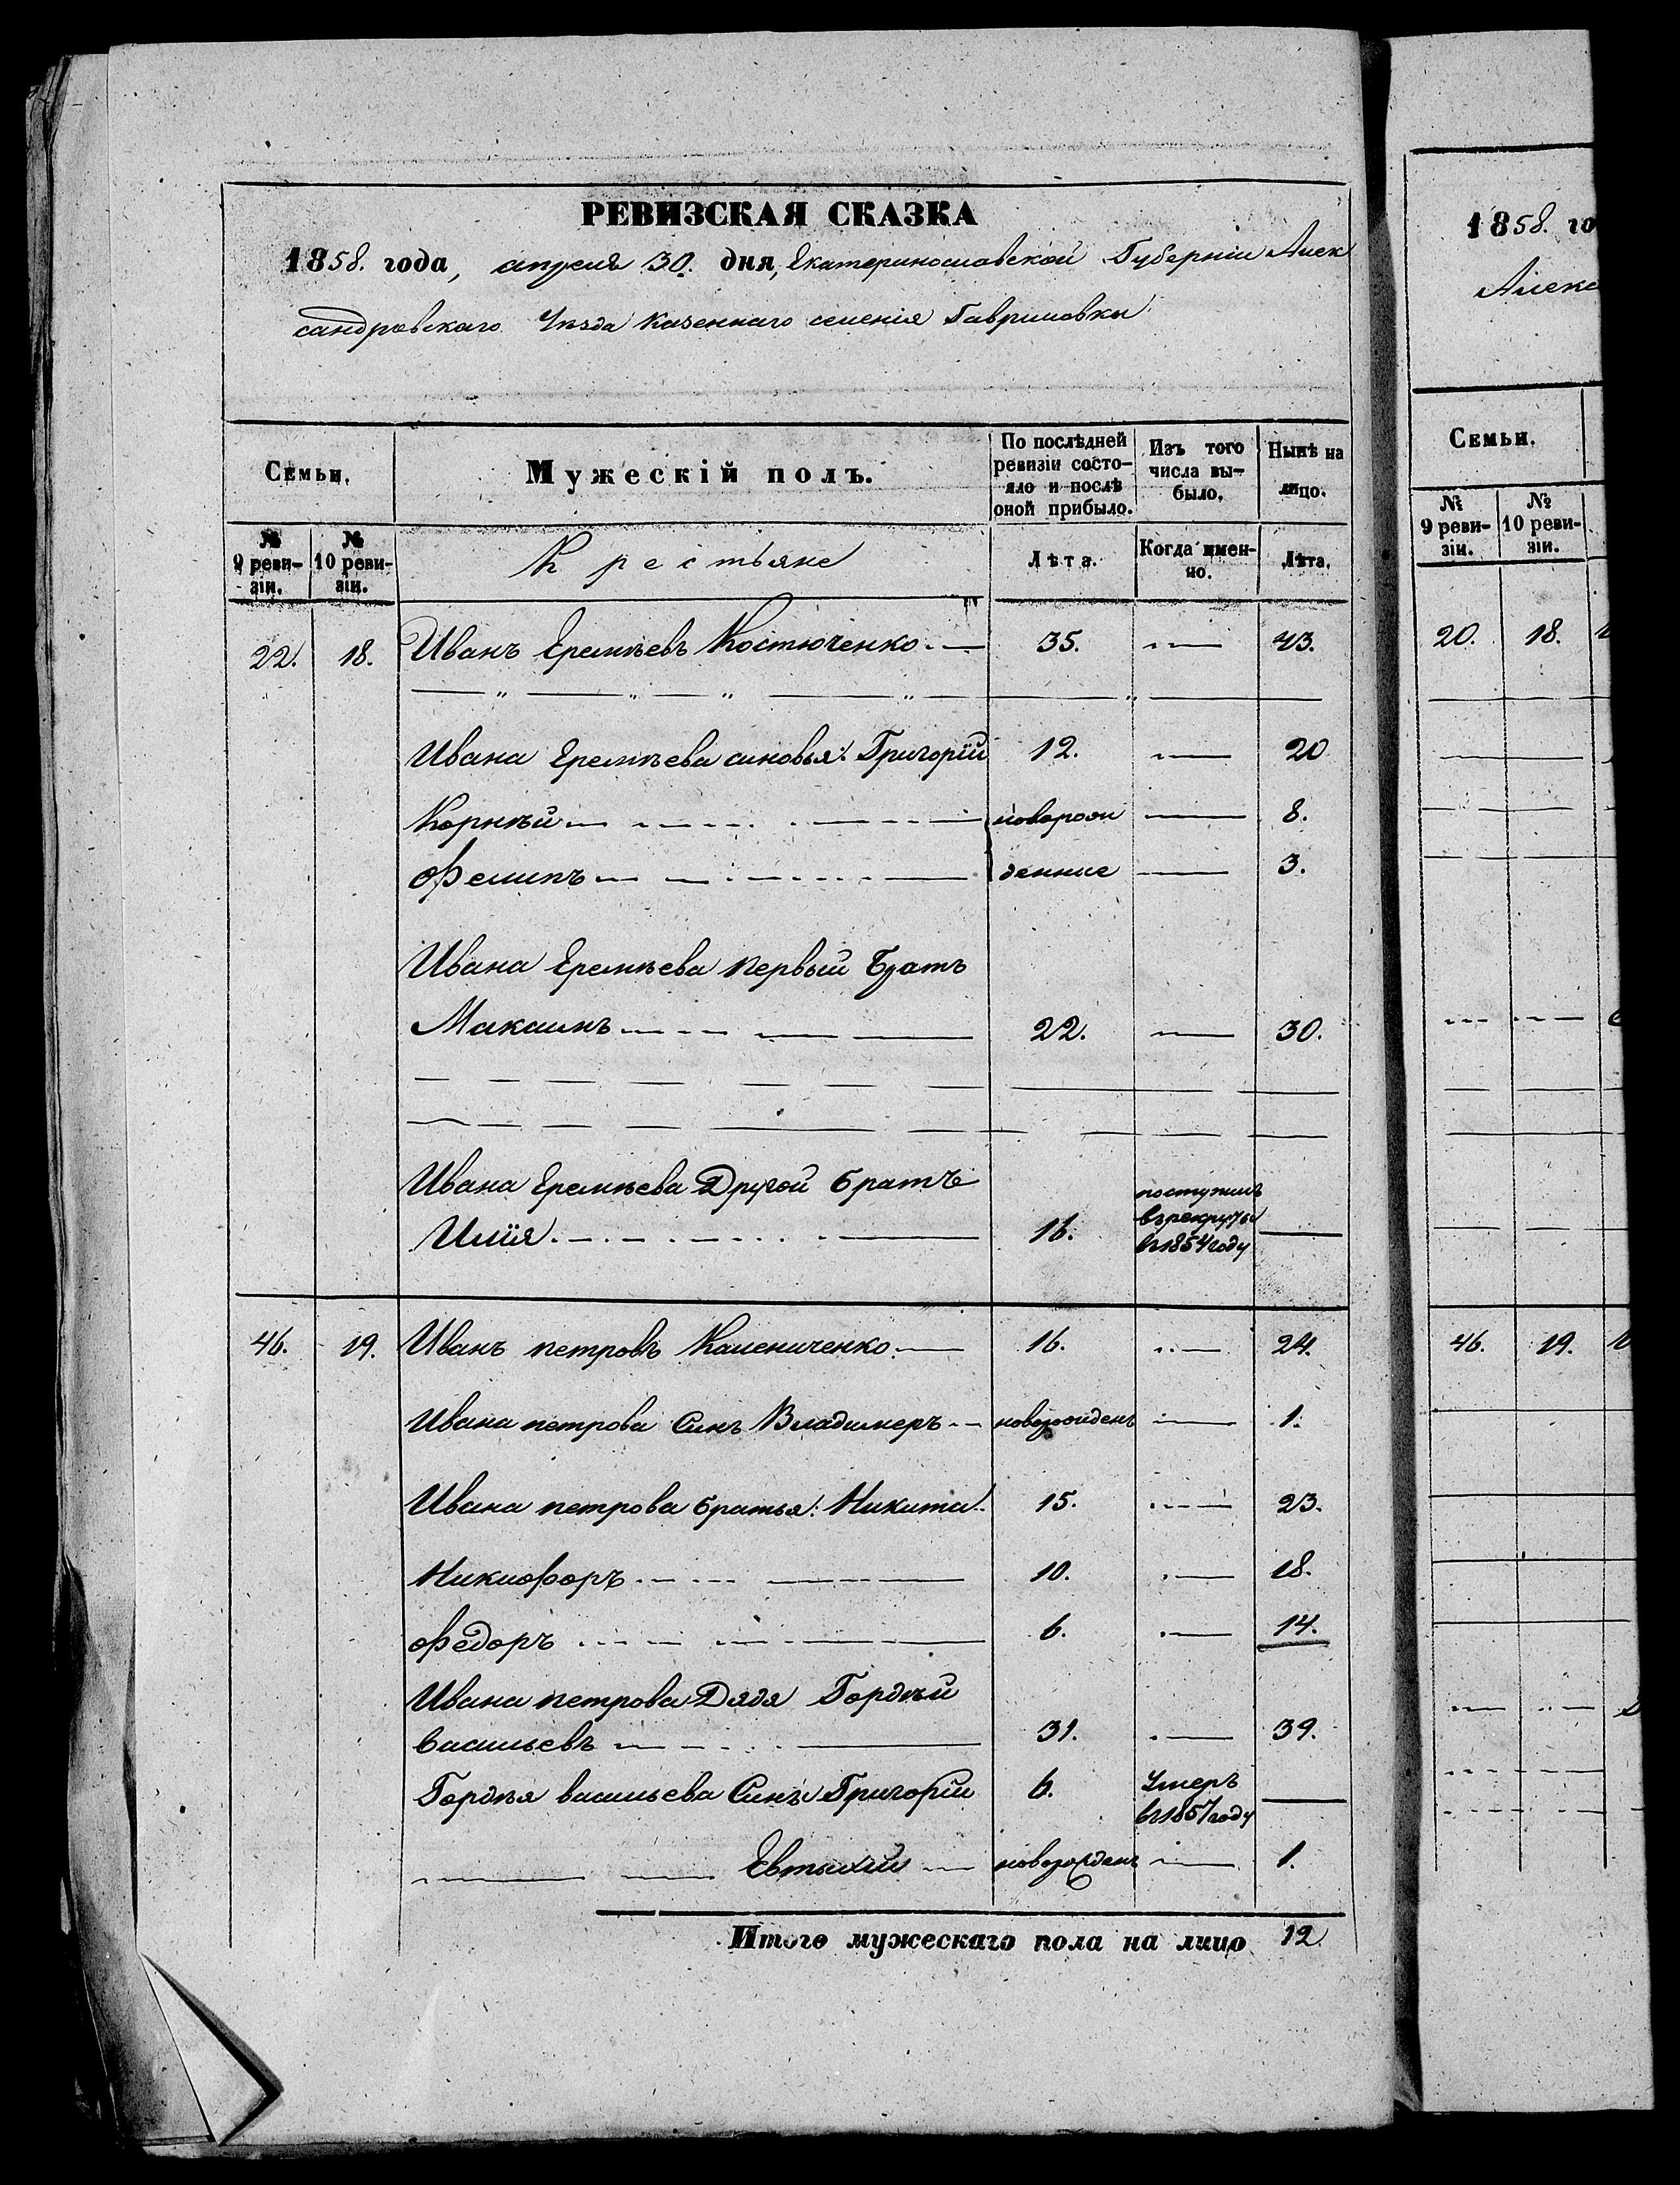 РЕВИЗСКАЯ СКАЗКА
1858. года, апреля 30. дня, Екатеринославской Губерніи Алек
сандровскаго Уѣзда казеннаго селенія Гавриловки
Семьи. Мужескій полъ. По послѣдней ревизіи состо- яло и послѣ оной прибыло. Изъ того числа вы- было. Нынѣ на лицо.
№ 9 реви- зіи. № 10 реви- зіи. Крестьяне Лѣта. Когда имен- но. Лѣта.
22. 18. Иванъ Еремѣевъ Костюченко 35. 43.
Ивана Еремѣева синовья: Григорій 12. 20
Корнѣй новорож 8.
Фелипъ денные 3.
Ивана Еремѣева первый Братъ
Максимъ 22. 30.
Ивана Еремѣева Другой братъ
Илія 16. поступилъ въ рекруты въ 1854 году
46. 19. Иванъ петровъ Калениченко 16. 24.
Ивана петрова Синъ Владимеръ новорожденъ 1.
Ивана петрова братья: Никита 15. 23.
Никифоръ 10. 18.
Федоръ 6. 14.
Ивана петрова Дядя Гордѣй
Васильевъ 31. 39.
Гордѣя васильева Синъ: Григорій 6. Умеръ въ 1857 году
Евтыхій новорожденъ 1.
Итого мужескаго пола на лицо 12
1858. го
Алекс
Семьи.
№ 9 реви- зіи. № 10 реви- зіи.
20. 18.
46. 19.